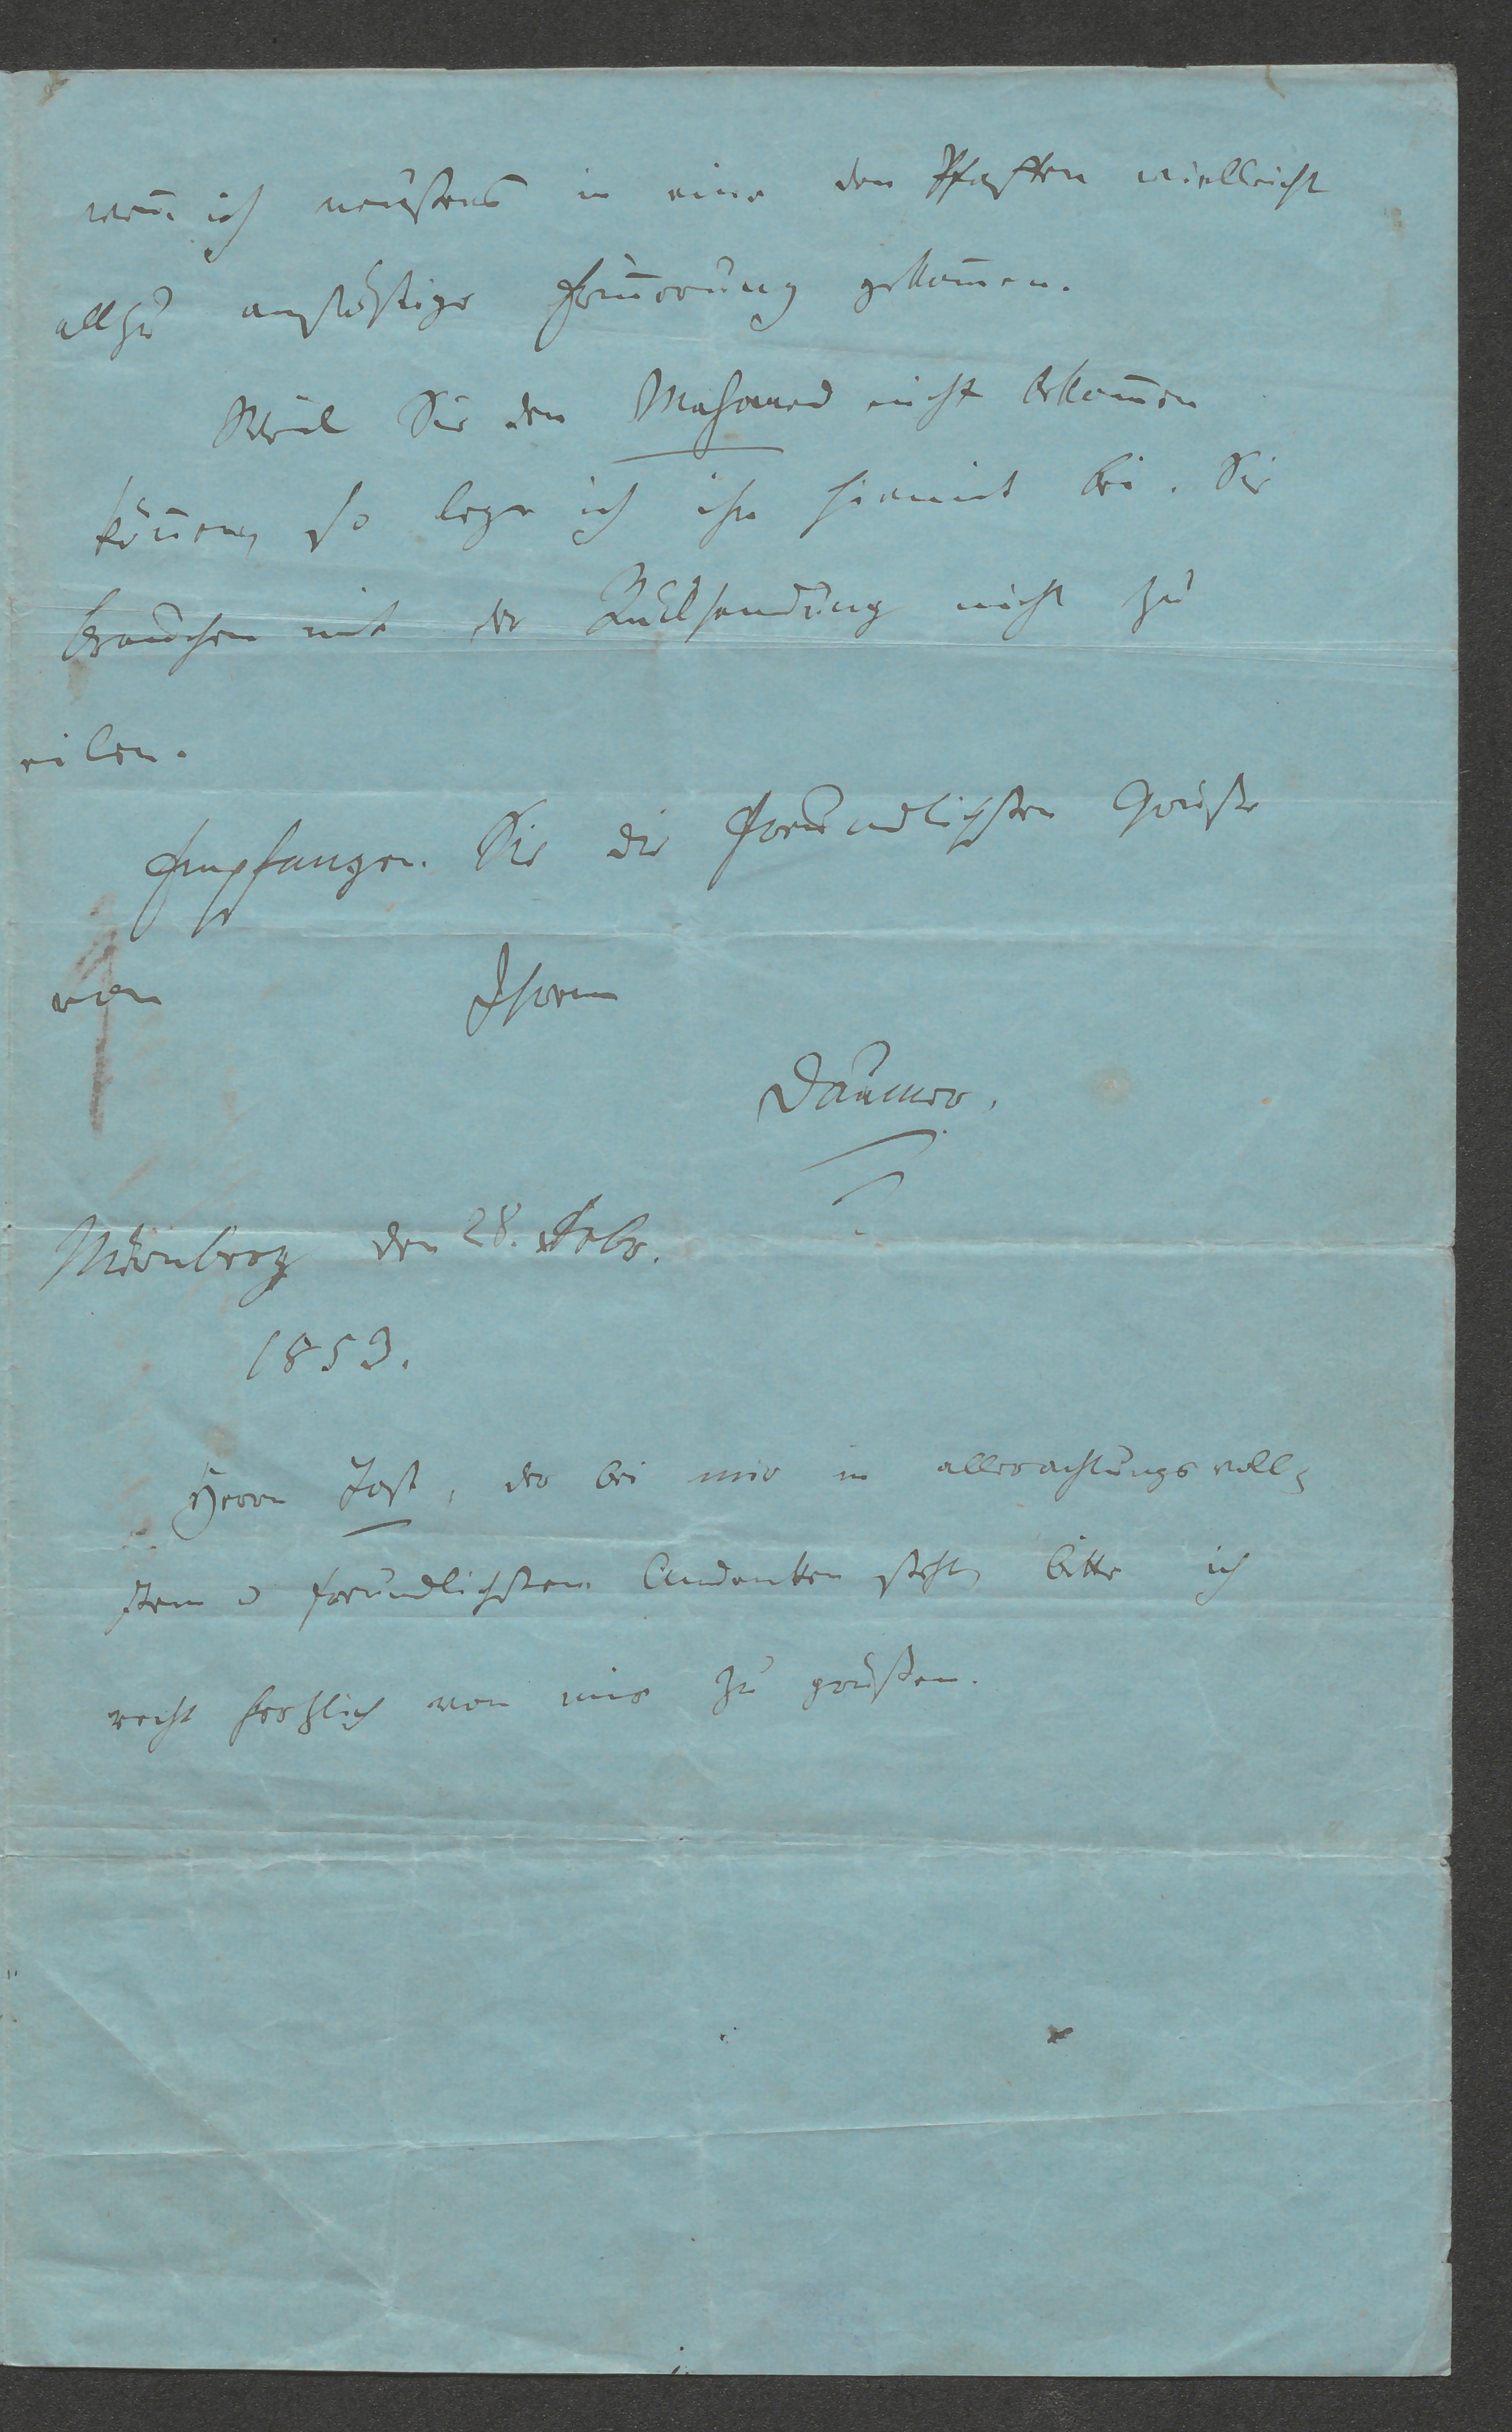 weñ ich neustens in eine den Pfaffen vielleicht
allzu anstößige Eriñerung gekom̄en.
Weil Sie den Mahomed nicht bekom̄en
köñen, so lege ich ihn hiemit bei. Sie
brauchen mit der Rücksendung nicht zu
eilen.
Empfangen Sie die freundlichsten Grüße
von Ihrem
Daumer.
Nürnberg den 28. Febr.
1853.
Herrn Jost, der bei mir in allerachtungsvoll-
stem u freundlichstem Andenken steht, bitte ich
recht herzlich von mir zu grüßen.